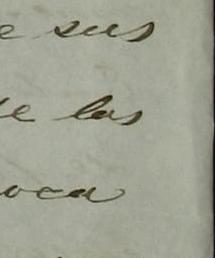 e sus
de las
oca